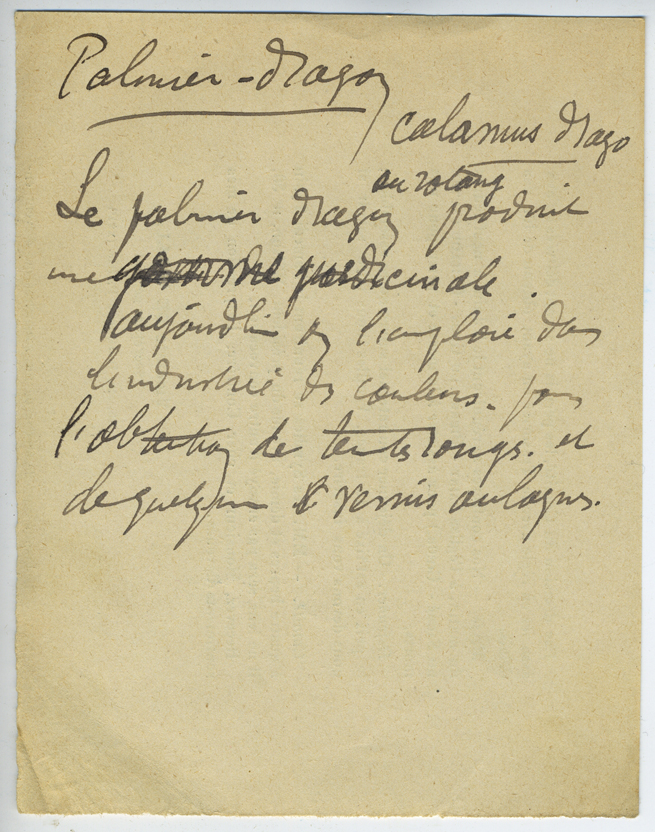 Palmier-dragon
calamus drago
ou rotang
Le palmier dragon produit
une médicinale.
aujourd'hui on l'emploie dans
l'industrie des couleurs. pour
l'obtention de teintes rouges. et
de quelques vernis ou laques.